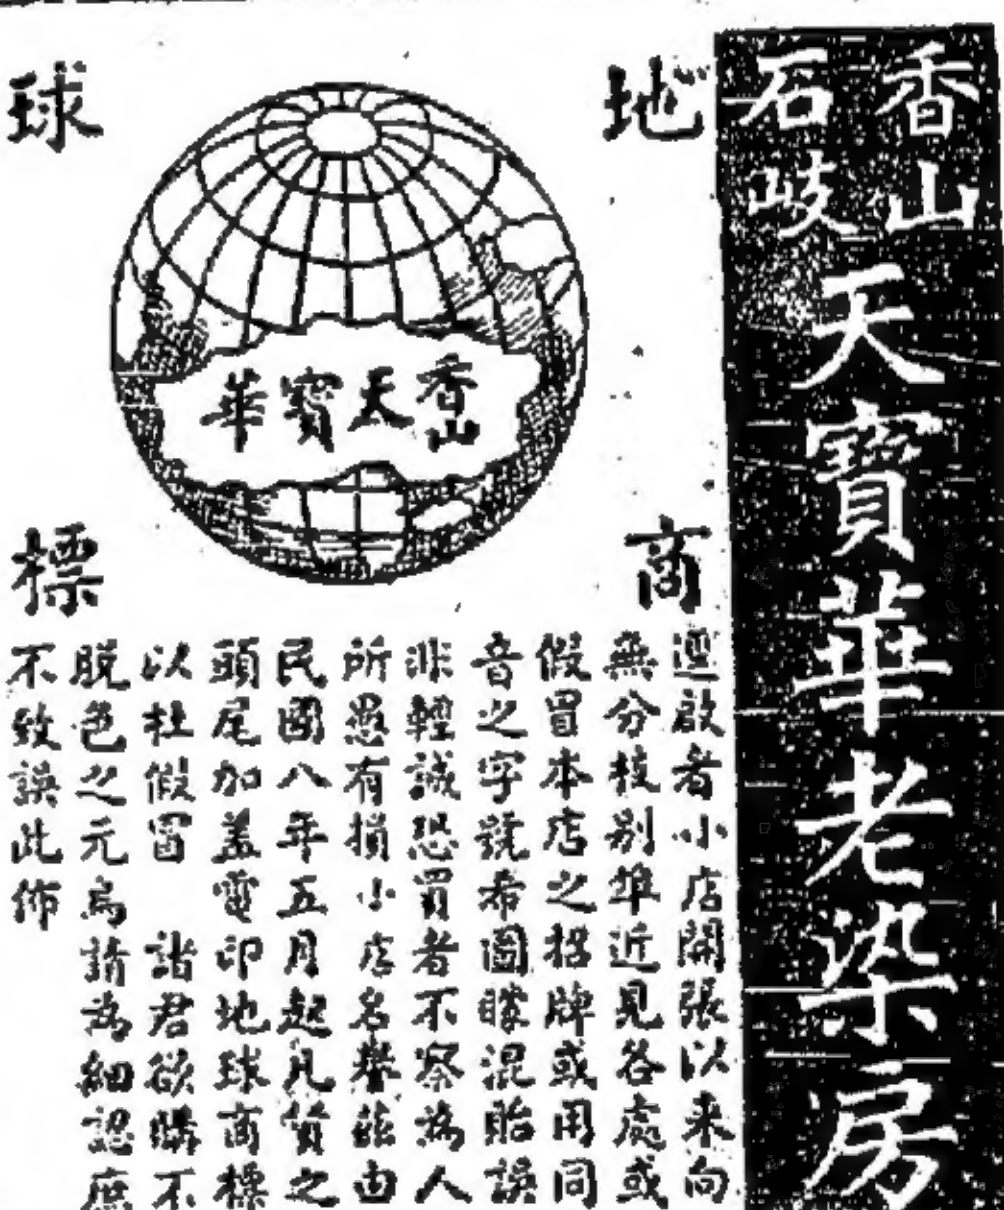 香山
石岐
天寶華老染房
地球
商標
香山天寶華
逕啟者小店開張以来向
無分枝别埠近見各處或
假冒本店之招牌或用同
音之字號希圖矇混貽誤
非輕誠恐買者不察為人
所愚有損小店名譽茲由
民國八年五月起凡貨之
頭尾加盖電印地球商標
以杜假冒 諸君欲購不
脱色之元烏請為細認庶
不致誤此佈